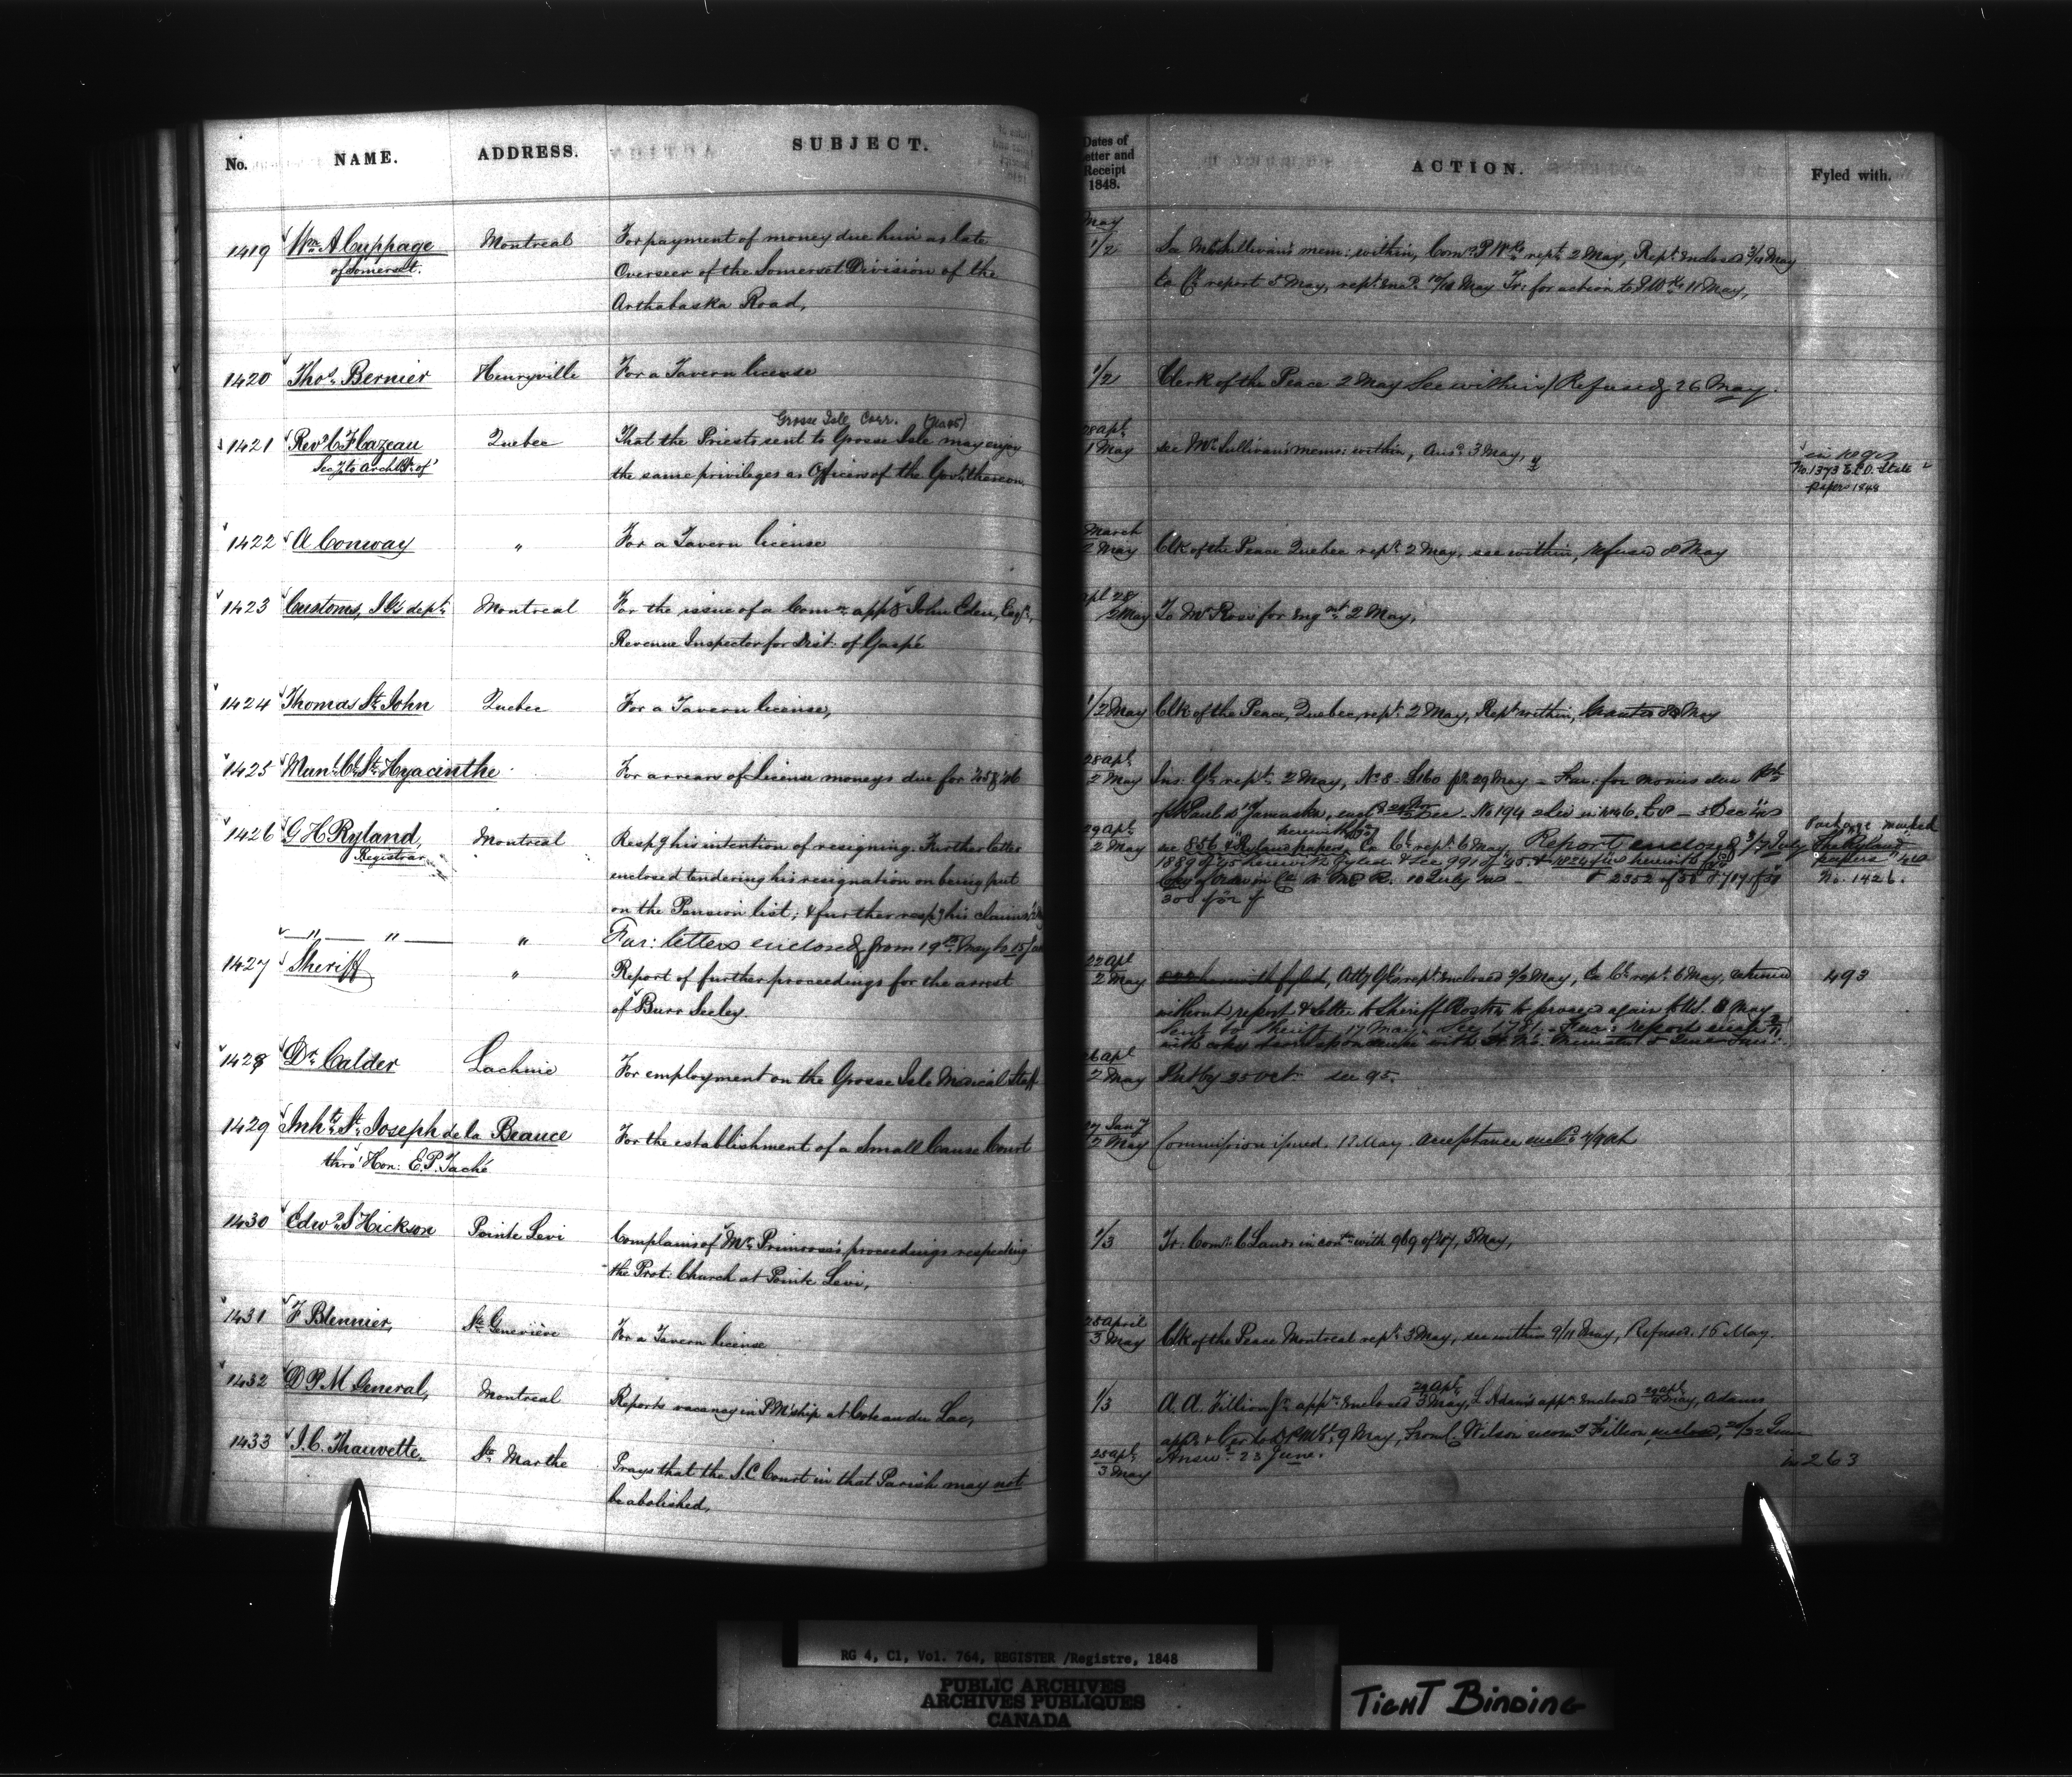 No. NAME. ADDRESS. SUBJECT.
Dates of Letter and Receipt 1848. ACTION. Fyled with.
1419 Wm A Cuppage Montreal For payment of money due him as late
of Somerset. Overseer of the Somerset Division of the
Arthabaska Road,
May
1/2 See Mr Sullivan's mem: within, Comrs P Wks rept 2 May, Rept enclosed 3/4 May
to Cl report 5 May, rept encd 10/10 May Tr: for action to P Wks 11 May,
1420 Thos Bernier Henryville For a Tavern license
1/2 Clerk of the Peace 2 May See within / Refused 26 May.
Grosse Isle Corr.
1421 Revd C F Cazeau Quebec That the Priests sent to Grosse Isle may enjoy
Secy to Archbp of the same privileges as Officers of the Govt thereon.
28 apl
1 May see Mr Sullivan's memo: within, Ansd 3 May,
in Regr
No. 1373 State
papers 1848
1422 A Conway " For a Tavern license
March
2 May Clk of the Peace Quebec rept 2 May, see within, refused 8 May
1423 Customs, I G's dept Montreal For the issue of a Comn appg John Eden, Esqr,
Revenue Inspector for Dist: of Gaspé
apl 28
/2 May To Mr Ross for Engmt 2 May,
1424 Thomas St John Quebec For a Tavern license,
1/2 May Clk of the Peace, Quebec, rept 2 May, Rept within, Granted May
1425 Munl Cl St Hyacinthe For arrears of License moneys due for '45 & '46
28 apl
2 May Ins: Gl rept 2 May, No 8 - £160 29 May - Fur: for monies due
of St Paul d'Yamaska, Dec. No 194 5 Dec
1426 G H Ryland, Montreal Respg his intention of resigning. Further letter
Registrar enclosed tendering his resignation on being put
on the Pension list; & further respg his claims,
29 apl
2 May see 856 "Ryland papers" Co Cl rept 6 May, Report enclosed 3/7 July
1889 of '45 herewith fyled & see 991 of '45.
Copy of Order in Cl 10 July & 2352 of
Package marked
"The Ryland
papers"
No. 1426.
" " " Fur: letters enclosed from 19th May to 15 June
1427 Sheriff " Report of further proceedings for the arrest
of Burr Seeley.
22 apl
2 May herewith fyled, Atty Gl's rept enclosed 2/3 May, Co Cl rept 6 May, returned
without report & letter to Sheriff Boston to proceed again May
Sent to Sheriff 17 May. See 1781 - Fur: report encld
with copy correspondence with
493
1428 Dr Calder Lachine For employment on the Grosse Isle Medical Staff
26 apl
2 May Put by 25 Oct see 95.
1429 Inhts St Joseph de la Beauce For the establishment of a Small Cause Court
thro' Hon: E. P. Taché
27 Jany
2 May Commission issued. 17 May. Acceptance encld
1430 Edwd S Hickson Pointe Levi Complains of Mr Primrose's proceedings respecting
the Prot: Church at Pointe Levi,
1/3 Tr: Comr C Lands in conn with 969 of '47, 3 May,
1431 F Blennier, Ste Geneviève For a Tavern license
28 April
3 May Clk of the Peace Montreal rept 3 May, see within 9/11 May, Refused. 16 May.
1432 D P M General, Montreal Reports vacancy in P M'ship at Coteau du Lac,
1/3 A. A. Fillion Jr appn enclosed 29 apl 3 May, L Adams appn enclosed 29 apl May, Adams
appd & Cer to D P M G, 9 May, From C. Wilson recomg Fillion enclosed, 20/22 June
Answd 23 June.
1433 J. C. Thauvette, Ste Marthe Prays that the S. C Court in that Parish may not
be abolished,
28 apl
3 May
in 263
RG 4, C1, Vol. 764, REGISTER /Registre, 1848
PUBLIC ARCHIVES
ARCHIVES PUBLIQUES
CANADA
TIGHT BINDING